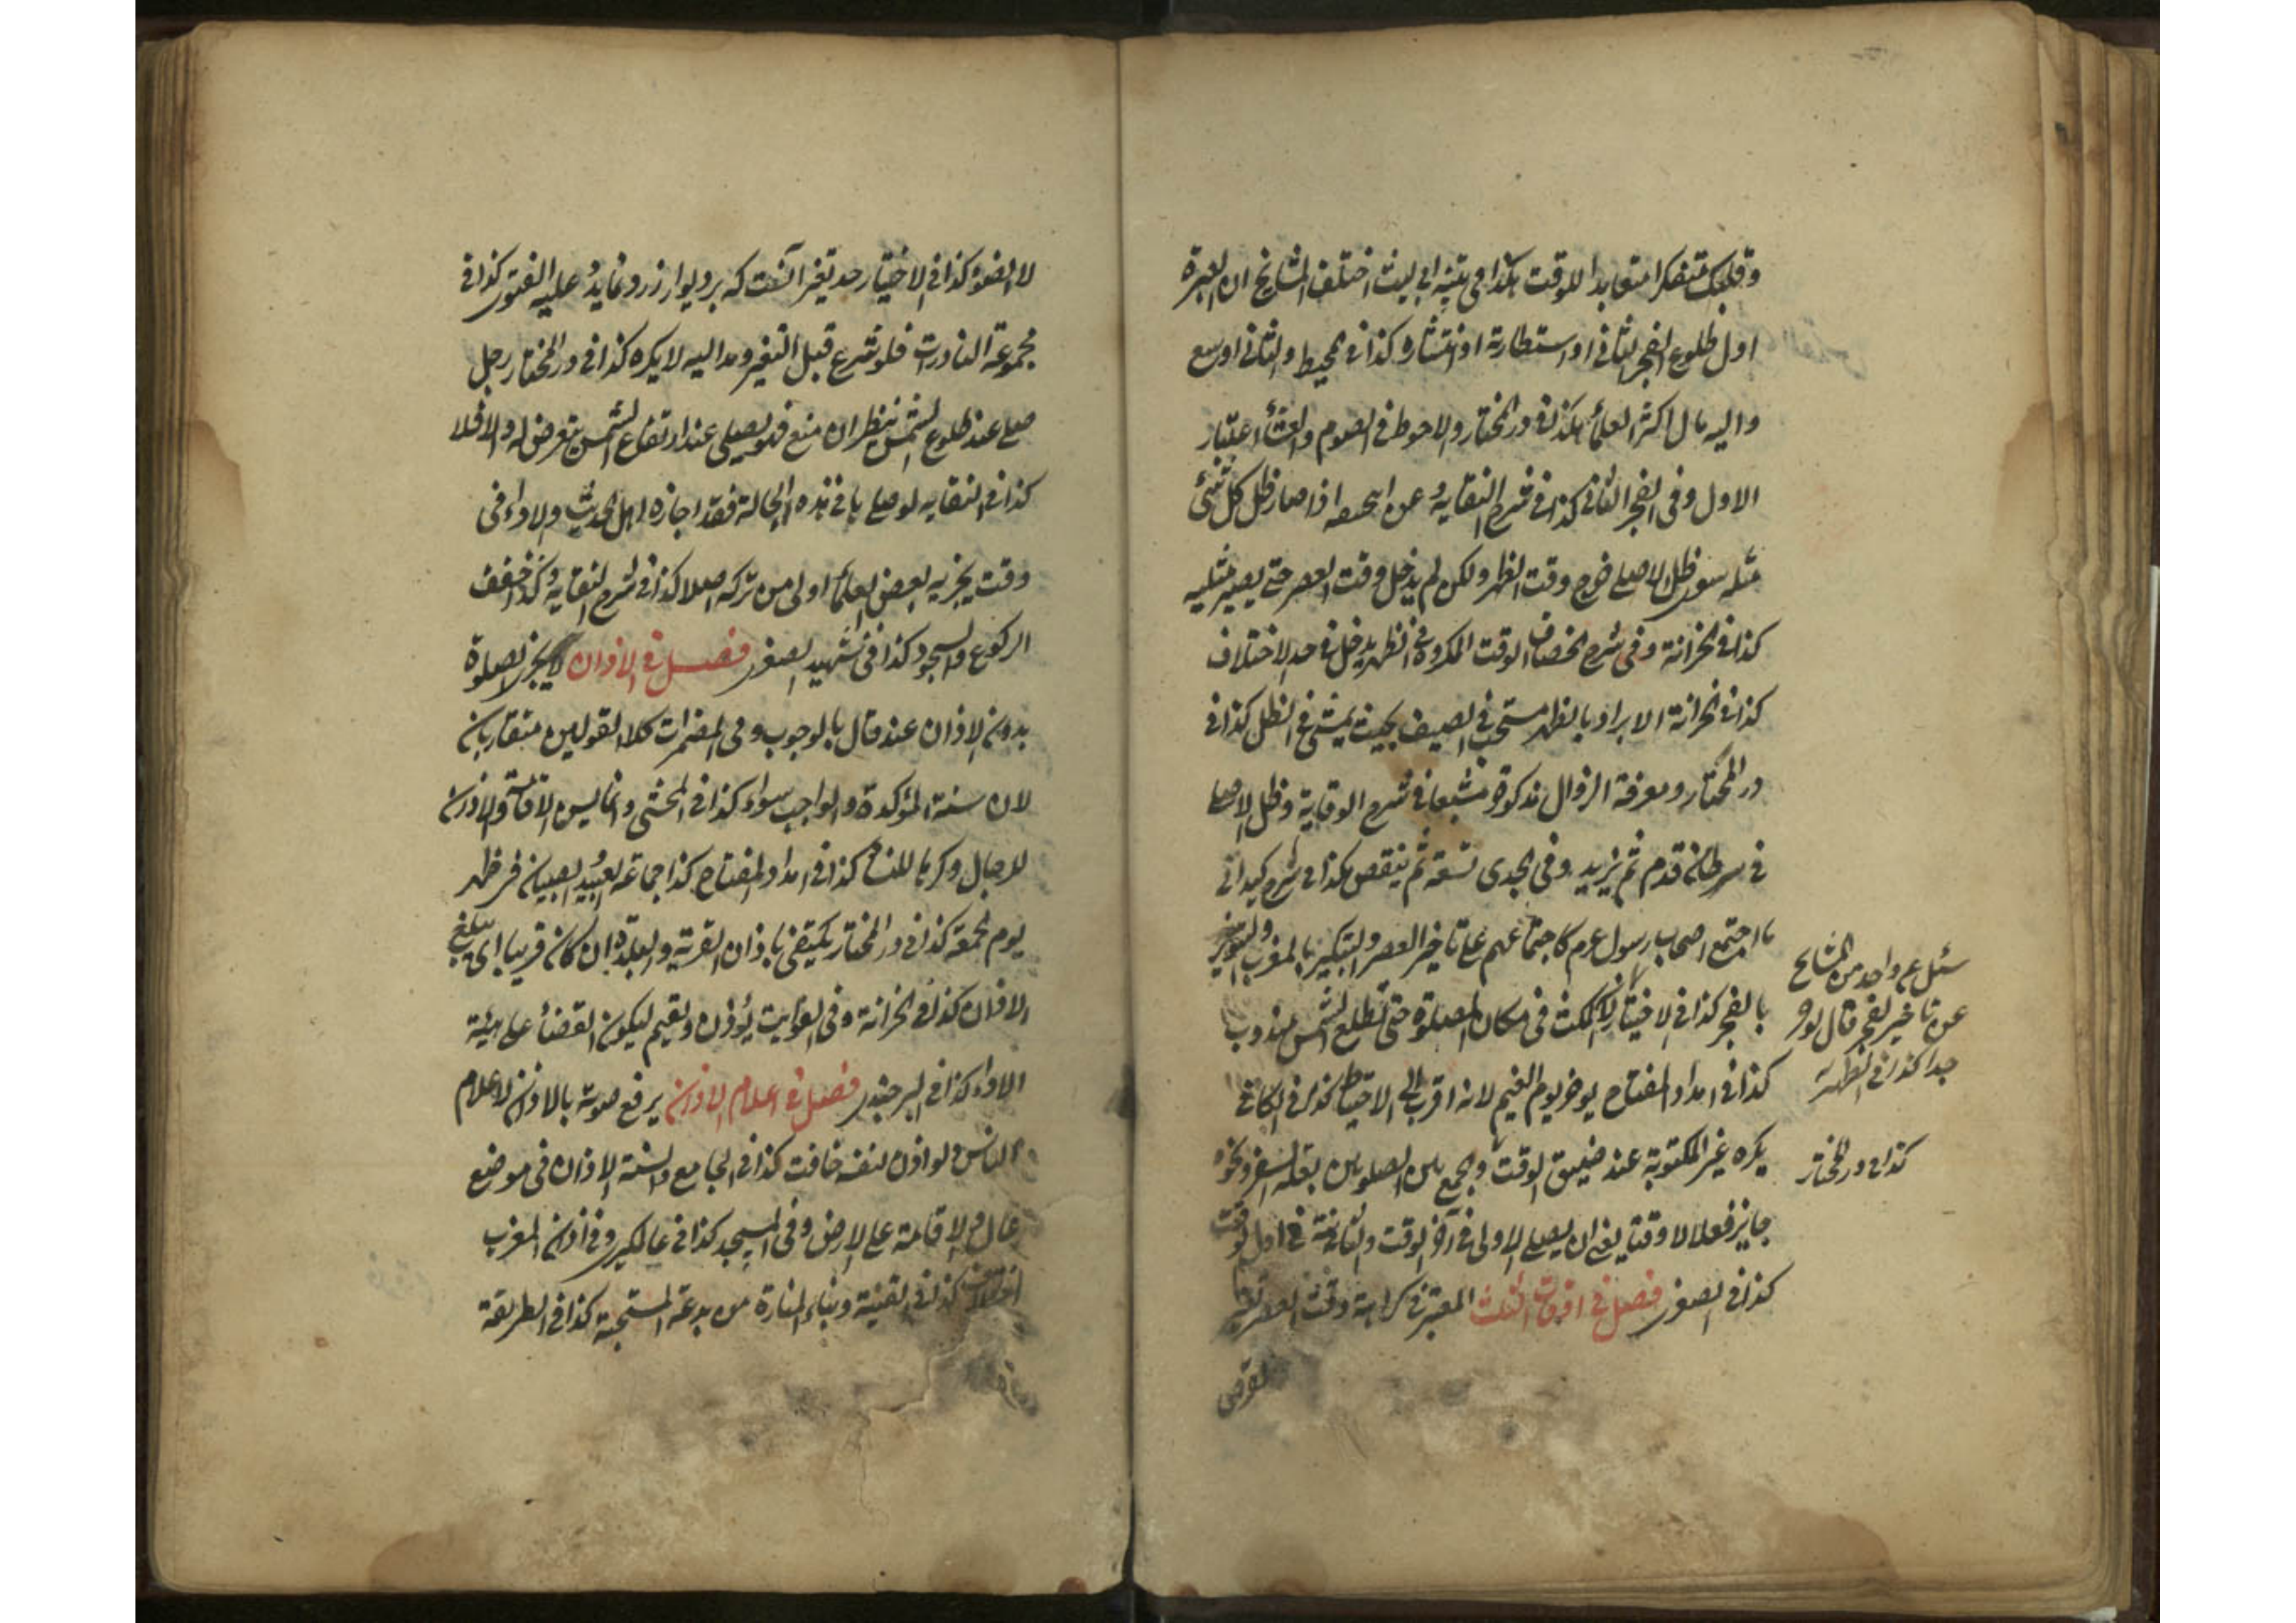 وقلبك متفكرا متعابدا للوقت هكذا في تنبيه ابي ليث اختلف المشايخ ان العبرة
اول طلوع الفجر الثاني او استطارته او انتشاره كذا في المحيط والثاني اوسع
واليه مال اكثر العلماء هكذا في در المختار والاحوط في الصوم والعشاء اعتبار
الاول وفي الفجر الثاني كذا في شرح النقاية وعن ابي حنيفه اذا صار ظل كل شئ
مثله سوى ظل الاصلي خرج وقت الظهر ولكن لم يدخل وقت العصر حتى يصير مثليه
كذا في الخزانة وفي شرح الخصاف الوقت المكروه في الظهر يدخل في حد الاختلاف
كذا في الخزانة الابراد بالظهر مستحب في الصيف بحيث يمشي في الظل كذا في
در المختار ومعرفة الزوال مذكورة مشبعا في شرح الوقاية وظل الاصلي
في سرطان قدم ثم يزيد وفي الجدى تسعة ثم ينقص هكذا في شرح كيداني
ما اجتمع اصحاب رسول عرم كاجتماعهم على تاخير العصر والتبكير بالمغرب والتنوير
بالفجر كذا في الاختيار المكث في مكان الصلوة حتى تطلع الشمس مندوب
كذا في امداد المفتاح يؤخر يوم الغيم لانه اقرب الى الاحتياط كذا في الكافي
يكره غير المكتوبة عند ضيق الوقت والجمع بين الصلوتين بعلة السفر ونحوه
جايز فعلا لا وقتا يعني ان يصلي الاولى في آخر الوقت والثانية في اول الوقت
كذا في الصغرى فصل في اوقات الثلث المعتبر في كراهة وقت العصر تغير
القرص
سئل عن واحد من المشايخ
عن تاخير الفجر قال يؤخر
جدا كذا في الظهيرية
كذا في در المختار
لا الضوء كذا في الاختيار حد تغير آنست كه بر ديوار زرد نمايد وعليه الفتوى كذا في
مجموعة النادرات فلو شرع قبل التغير ومد اليه لا يكره كذا في در المختار رجل
صلى عند طلوع الشمس ينظر ان منع فهو يصلي عند ارتفاع الشمس يتعرض له والا فلا
كذا في النقايه لو صلى بها في هذه الحالة فقد اجازه اهل الحديث والاداء في
وقت يجزيه بعض العلماء اولى من تركه اصلا كذا في شرح النقاية وكذا خفف
الركوع والسجود كذا في تمهيد الصغرى فصل في الاذان لا يجزى الصلوة
بدون الاذان عند قال بالوجوب وفي المضمرات كلا القولين متقاربان
لان سنة المؤكدة والواجب سواء كذا في المحشي وانما ليس الاقامة والاذان
للرجال وكرها للنساء كذا في امداد المفتاح كذا جماعة العبيد الصبيان في ظهر
يوم الجمعة كذا في در المختار يكتفي باذان القرية والبلدة ان كان قريبا اي يبلغ
الاذان كذا في الخزانة وفي الفوايت يؤذن ويقيم ليكون القضاء على هيئة
الاداء كذا في البرجندى فصل في اعلام الاذان يرفع صوته بالاذان لاعلام
الناس ولو اذن لنفسه خافت كذا في الجامع والسنة الاذان في موضع
عال والاقامة على الارض وفي المسجد كذا في عالمگيرى وفي اذان المغرب
اختلاف كذا في القنية وبناء المنارة من بدعة المستحبة كذا في الطريقة